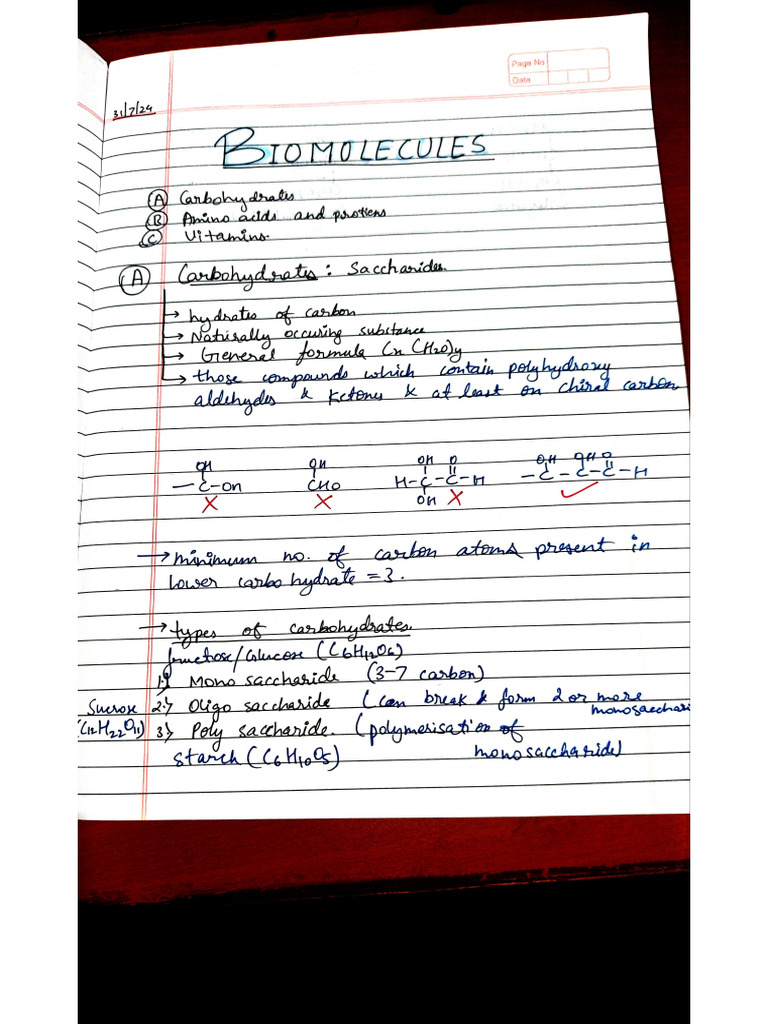 Page No
Date
31/7/24
BIOMOLECULES
A Carbohydrates
B Amino acids and protiens
C Vitamins.
A Carbohydrates : Saccharides.
→ hydrates of carbon
→ Naturally occuring substance
→ General formula Cx (H2O)y
→ those compounds which contain polyhydroxy
aldehydes & Ketones & at least on chiral carbon
OH OH OH O OH OH O
-C-OH CHO H-C-C-H -C-C-C-H
X X OH X ✓
→ minimum no. of carbon atoms present in
lower carbohydrate = 3.
→ types of carbohydrates.
fructose/Glucose (C6H12O6)
1.) Mono saccharide (3-7 carbon)
Sucrose 2.) Oligo saccharide (can break & form 2 or more
monosacchari
(C12H22O11) 3.) Poly saccharide. (polymerisation of
starch (C6H10O5) monosaccharide)